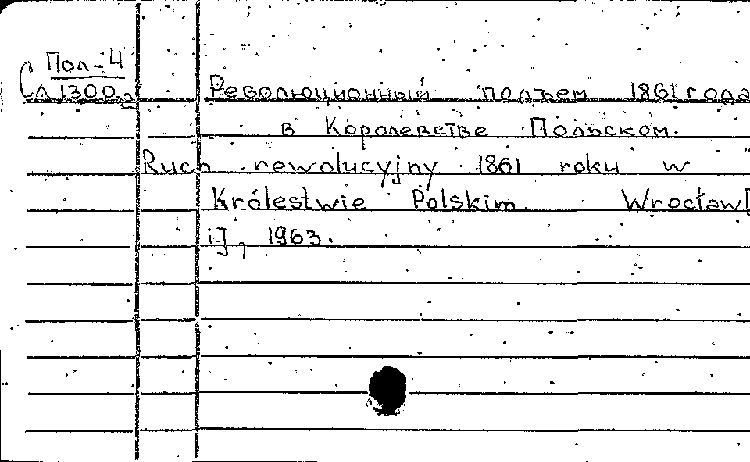 Пол-4
Сл1300
Революционный подъем 1861 года
в Королевстве Польском.
Ruch rewolucyjny 1861 roku w
Królestwie Polskim. Wrocław[
i], 1963.